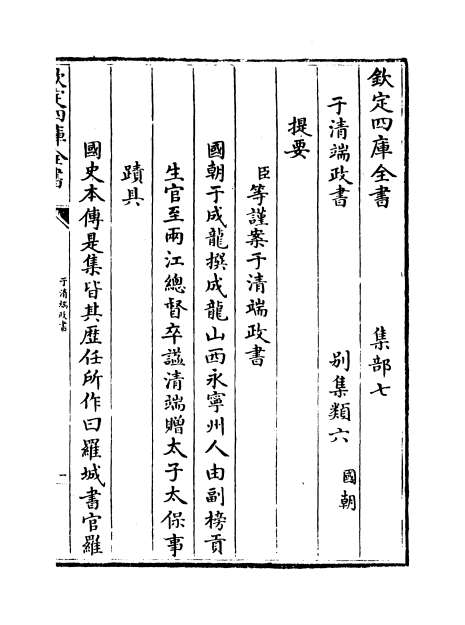 欽定四庫全書　集部七
于清端政書　別集類六國朝
提要
臣等謹案于清端政書
國朝于成龍撰成龍山西永寧州人由副榜貢
生官至兩江總督卒諡清端贈太子太保事
蹟具
國史本傳是集皆其歷任所作曰羅城書官羅
欽定四庫全書
于清端政書
一